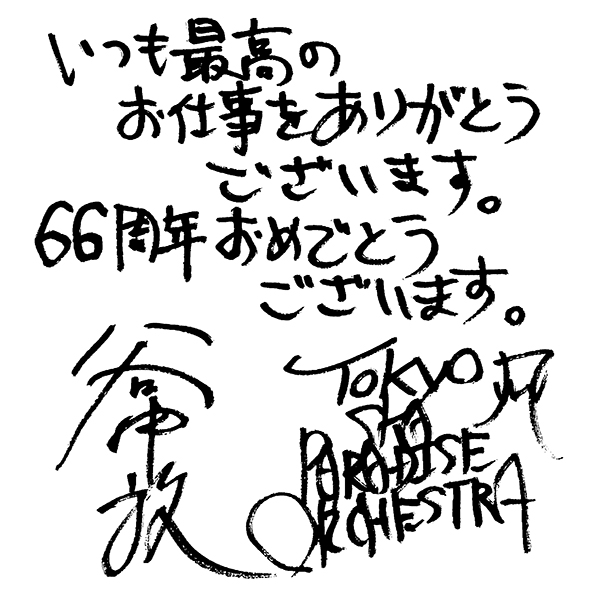 いつも最高の
お仕事をありがとう
ございます。
66周年おめでとう
ございます。
谷中敦
TOKYO
SKA
PARADISE
ORCHESTRA